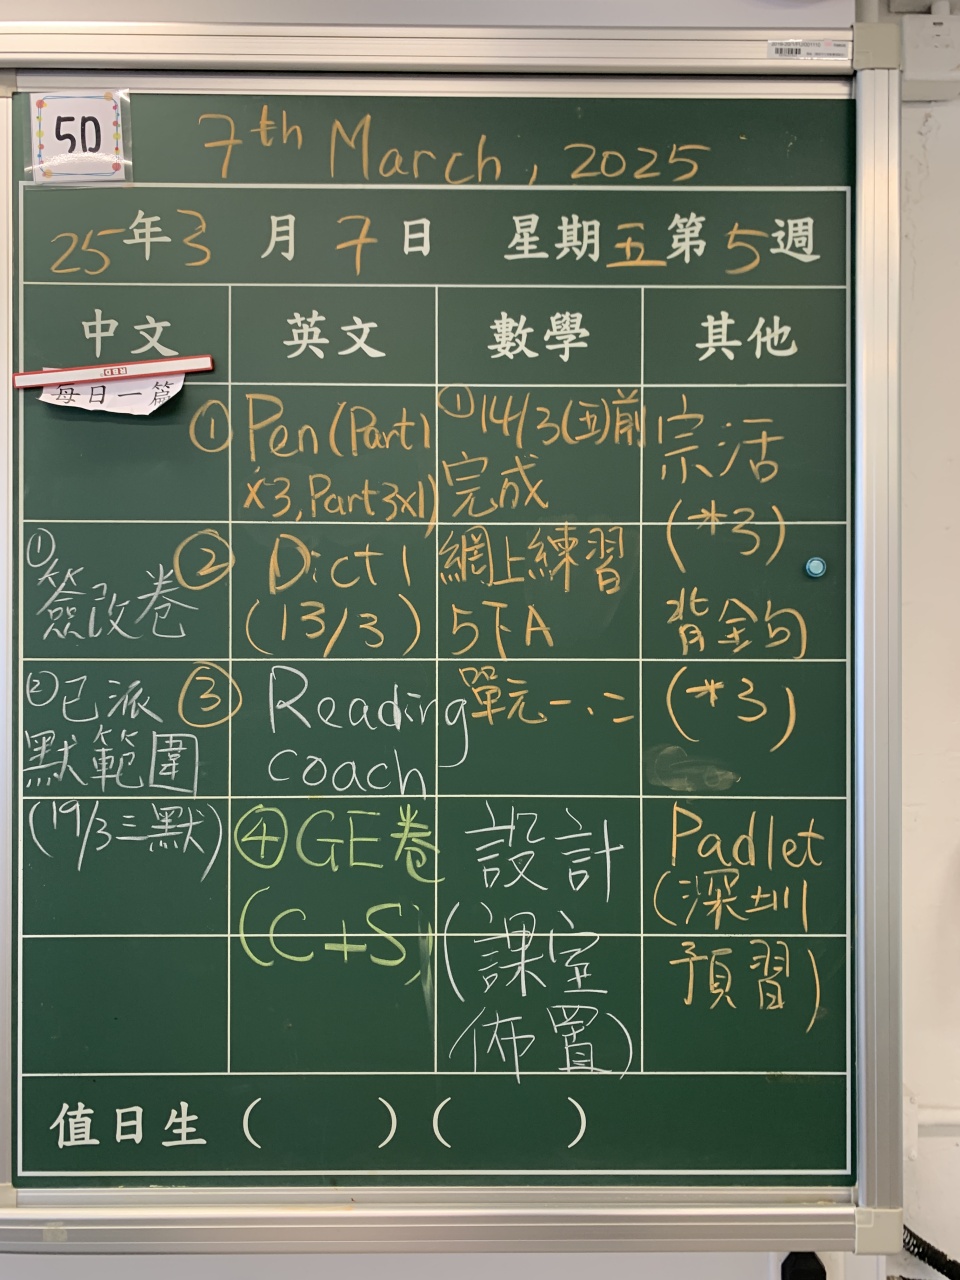 5D
7th March, 2025
25年3月7日 星期五第5週
中文
英文
數學
其他
每日一篇
①簽改卷
②已派
默範圍
(19/3三默)
①Pen(Part1
x3,Part3x1)
②Dict 1
(13/3)
③Reading
coach
④GE卷
(C+S)
①14/3(五)前
完成
網上練習
5下A
單元一、二
設計
(課室
佈置)
宗活
(*3)
背金句
(*3)
Padlet
(深圳
預習)
值日生 ( ) ( )